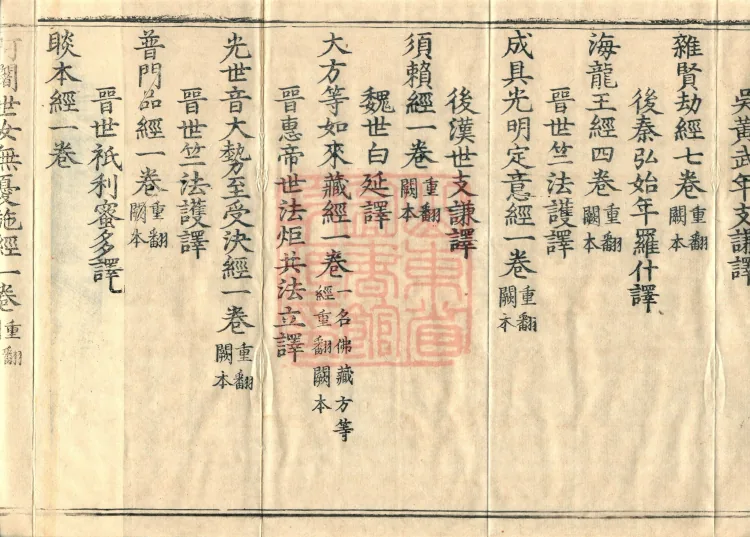 吳黃武年支謙譯
雜賢劫經七卷重翻闕本
後秦弘始年羅什譯
海龍王經四卷重翻闕本
晉世竺法護譯
成具光明定意經一卷重翻闕本
後漢世支謙譯
須賴經一卷重翻闕本
魏世白延譯
大方等如來藏經一卷一名佛藏方等經重翻闕本
晉惠帝世法炬共法立譯
光世音大勢至受決經一卷重翻闕本
晉世竺法護譯
普門品經一卷重翻闕本
晉世祇利蜜多譯
睒本經一卷
阿闍世女無憂施經一卷重翻